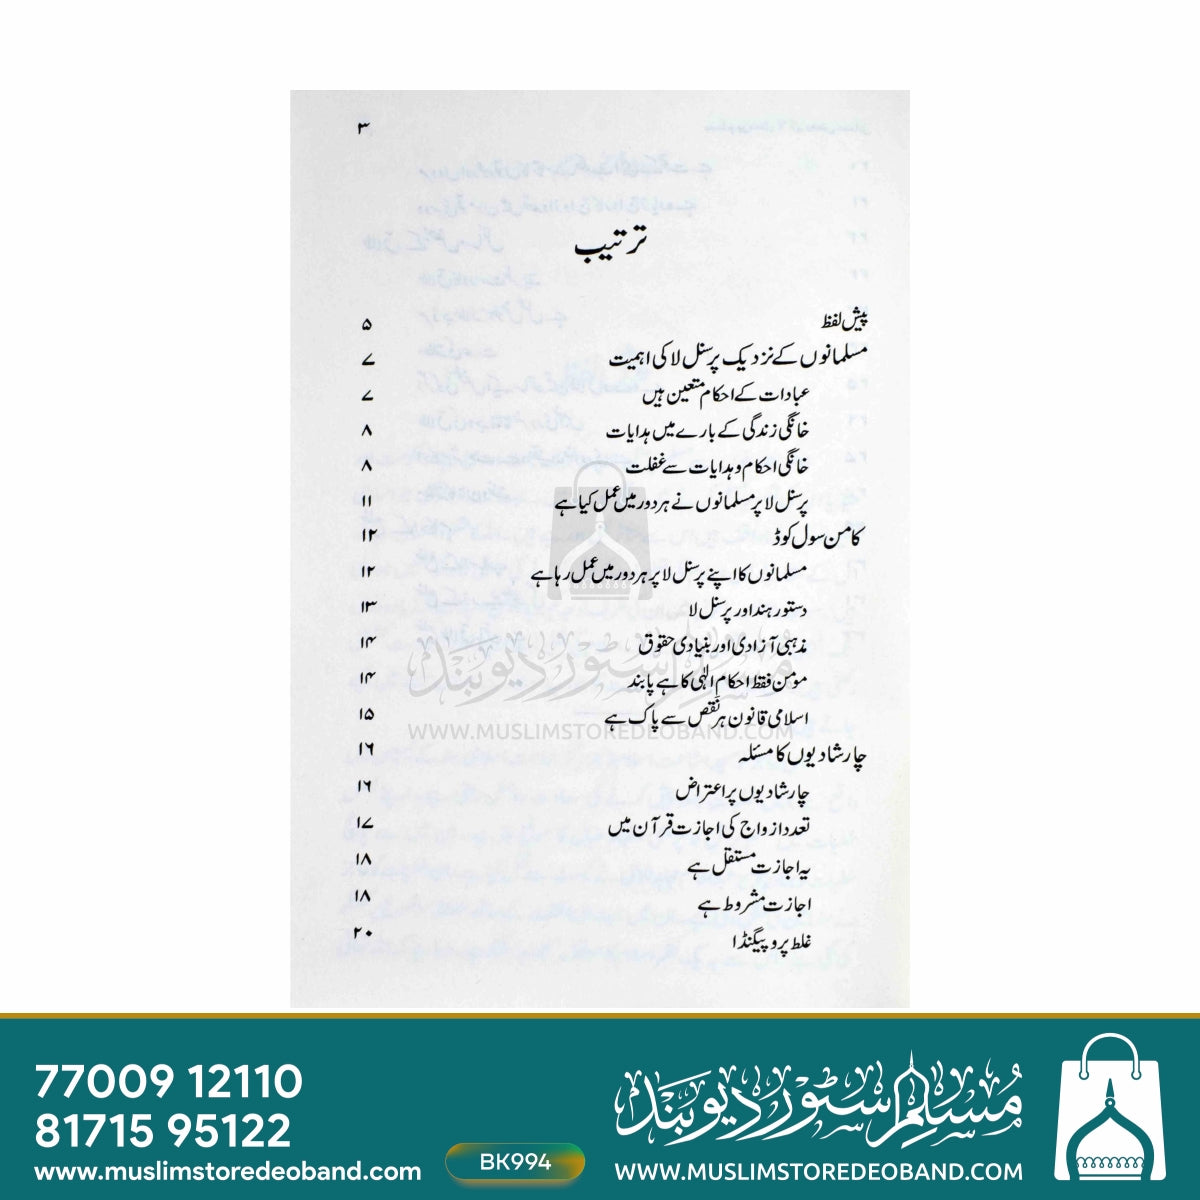 ۳
ترتیب
پیش لفظ ۵
مسلمانوں کے نزدیک پرسنل لا کی اہمیت ۷
عبادات کے احکام متعین ہیں ۷
خانگی زندگی کے بارے میں ہدایات ۸
خانگی احکام و ہدایات سے غفلت ۸
پرسنل لا پر مسلمانوں نے ہر دور میں عمل کیا ہے ۱۱
کامن سول کوڈ ۱۲
مسلمانوں کا اپنے پرسنل لا پر ہر دور میں عمل رہا ہے ۱۲
دستور ہند اور پرسنل لا ۱۳
مذہبی آزادی اور بنیادی حقوق ۱۴
مومن فقط احکام الٰہی کا ہے پابند ۱۴
اسلامی قانون ہر نقص سے پاک ہے ۱۵
چار شادیوں کا مسئلہ ۱۶
چار شادیوں پر اعتراض ۱۶
تعدد ازواج کی اجازت قرآن میں ۱۷
یہ اجازت مستقل ہے ۱۸
اجازت مشروط ہے ۱۸
غلط پروپیگنڈا ۲۰
مسلم سٹور دیوبند
WWW.MUSLIMSTOREDEOBAND.COM
77009 12110
81715 95122
www.muslimstoredeoband.com
BK994
مسلم سٹور دیوبند
WWW.MUSLIMSTOREDEOBAND.COM